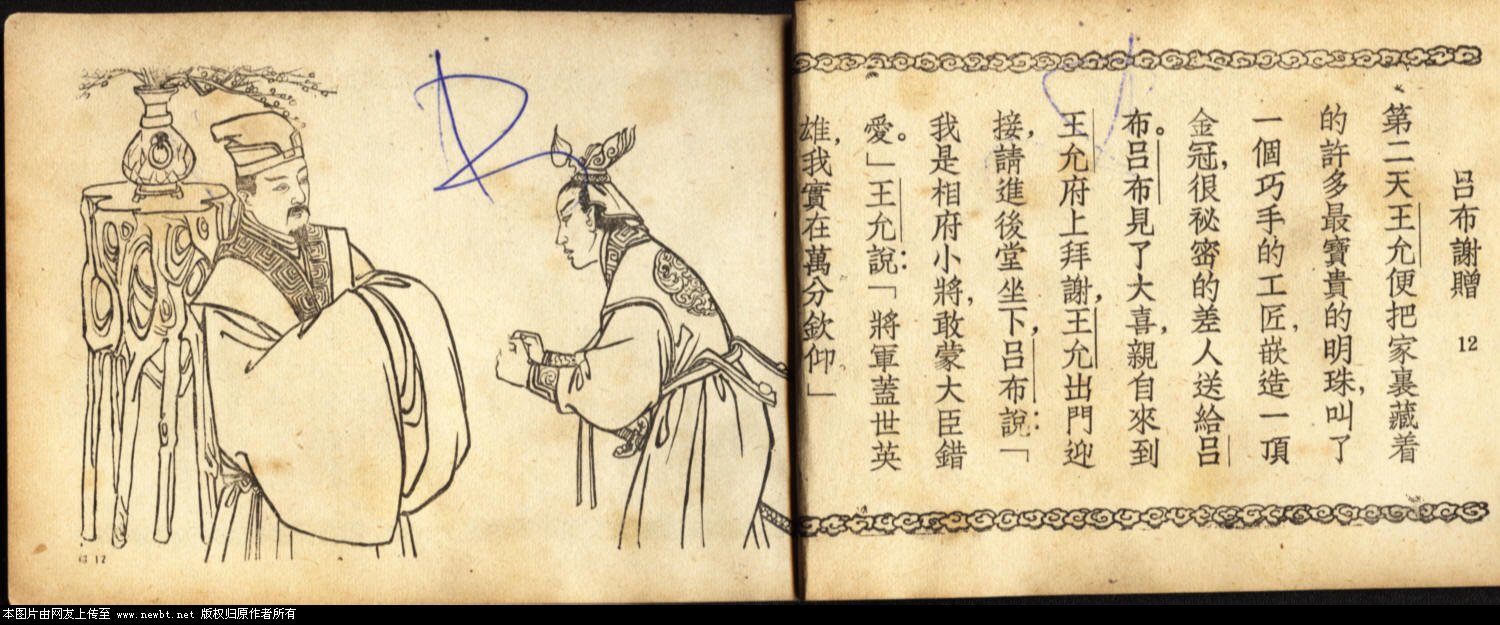 呂布謝贈 12
第二天王允便把家裏藏着
的許多最寶貴的明珠，叫了
一個巧手的工匠，嵌造一頂
金冠，很秘密的差人送給呂
布。呂布見了大喜，親自來到
王允府上拜謝，王允出門迎
接，請進後堂坐下，呂布說：「
我是相府小將，敢蒙大臣錯
愛。」王允說：「將軍蓋世英
雄，我實在萬分欽仰」
12
本图片由网友上传至 www.newbt.net 版权归原作者所有